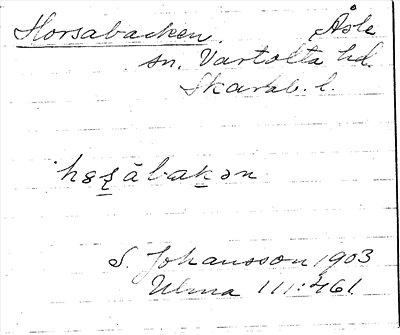 Horsabacken. Åsle
sn. Vartofta hd.
Skarab. l.
hɞʂābakən
S. Johansson 1903
Ulma 111:461.